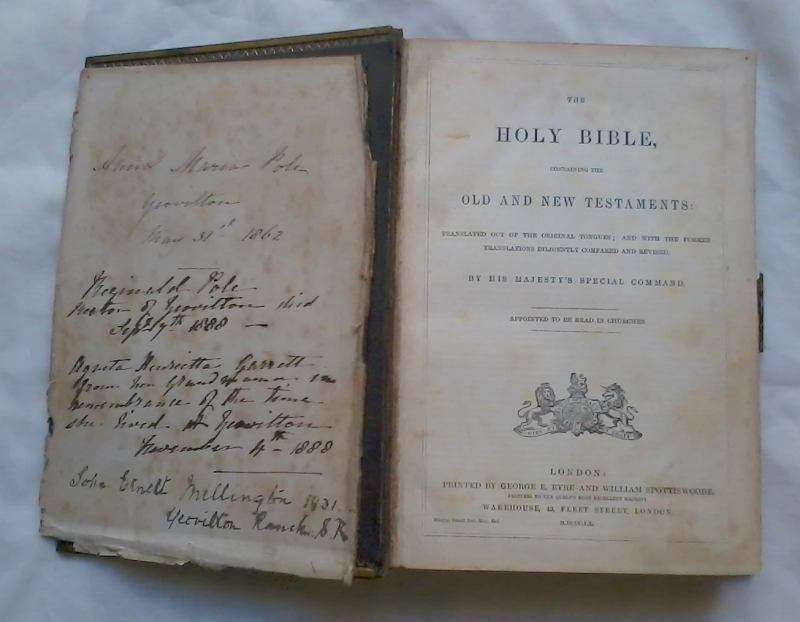 Anna Maria Pole
Yeovilton
May 31st 1862
Reginald Pole
Rector of Yeovilton died
Sept 9th 1888 —
Agneta Henrietta Garrett
from her Grandmama in
remembrance of the time
she lived at Yeovilton
November 4th 1888
John Ernest Wellington 1931
Yeovilton Ranch S.R
THE
HOLY BIBLE,
CONTAINING THE
OLD AND NEW TESTAMENTS:
TRANSLATED OUT OF THE ORIGINAL TONGUES; AND WITH THE FORMER
TRANSLATIONS DILIGENTLY COMPARED AND REVISED,
BY HIS MAJESTY'S SPECIAL COMMAND.
APPOINTED TO BE READ IN CHURCHES
LONDON:
PRINTED BY GEORGE E. EYRE AND WILLIAM SPOTTISWOODE,
PRINTERS TO THE QUEEN'S MOST EXCELLENT MAJESTY.
WAREHOUSE, 43, FLEET STREET, LONDON.